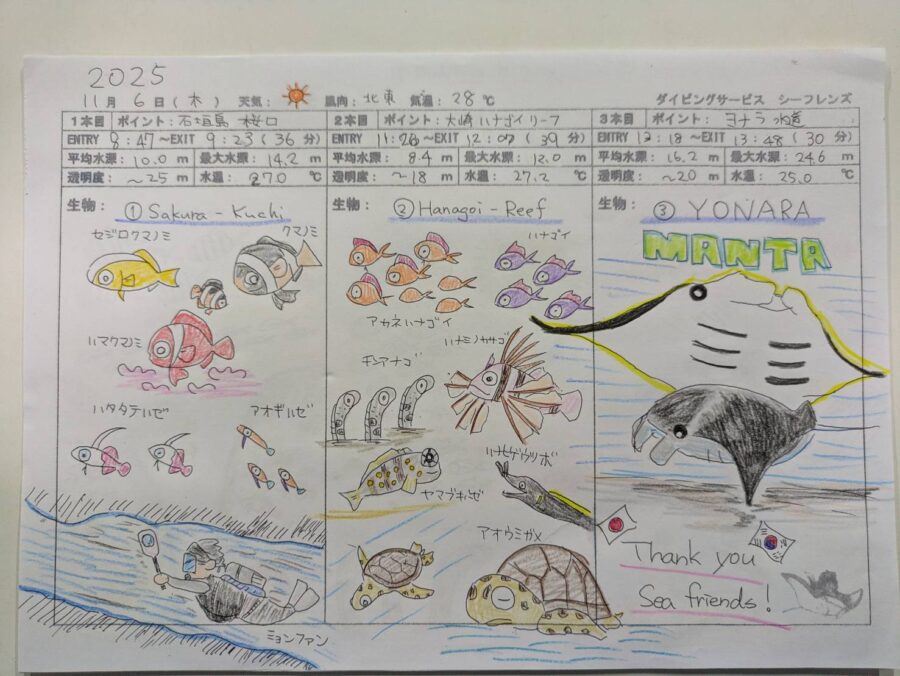 2025
11月 6日(木) 天気: 風向: 北東 気温: 28℃ ダイビングサービス シーフレンズ
1本目 ポイント: 石垣島 桜口
ENTRY 8:47~EXIT 9:23(36分)
平均水深: 10.0 m 最大水深: 14.2 m
透明度: ~25 m 水温: 27.0 ℃
生物: ① Sakura-Kuchi
セジロクマノミ
クマノミ
ハマクマノミ
ハタタテハゼ
アオギハゼ
ミョンファン
2本目 ポイント: 大崎ハナゴイリーフ
ENTRY 11:28~EXIT 12:07(39分)
平均水深: 8.4 m 最大水深: 12.0 m
透明度: ~18 m 水温: 27.2 ℃
生物: ② Hanagoi-Reef
ハナゴイ
アカネハナゴイ
ハナミノカサゴ
チンアナゴ
ハナヒゲウツボ
ヤマブキハゼ
アオウミガメ
3本目 ポイント: ヨナラ水道
ENTRY 13:18~EXIT 13:48(30分)
平均水深: 16.2 m 最大水深: 24.6 m
透明度: ~20 m 水温: 25.0 ℃
生物: ③ YONARA
MANTA
Thank you
Sea friends!